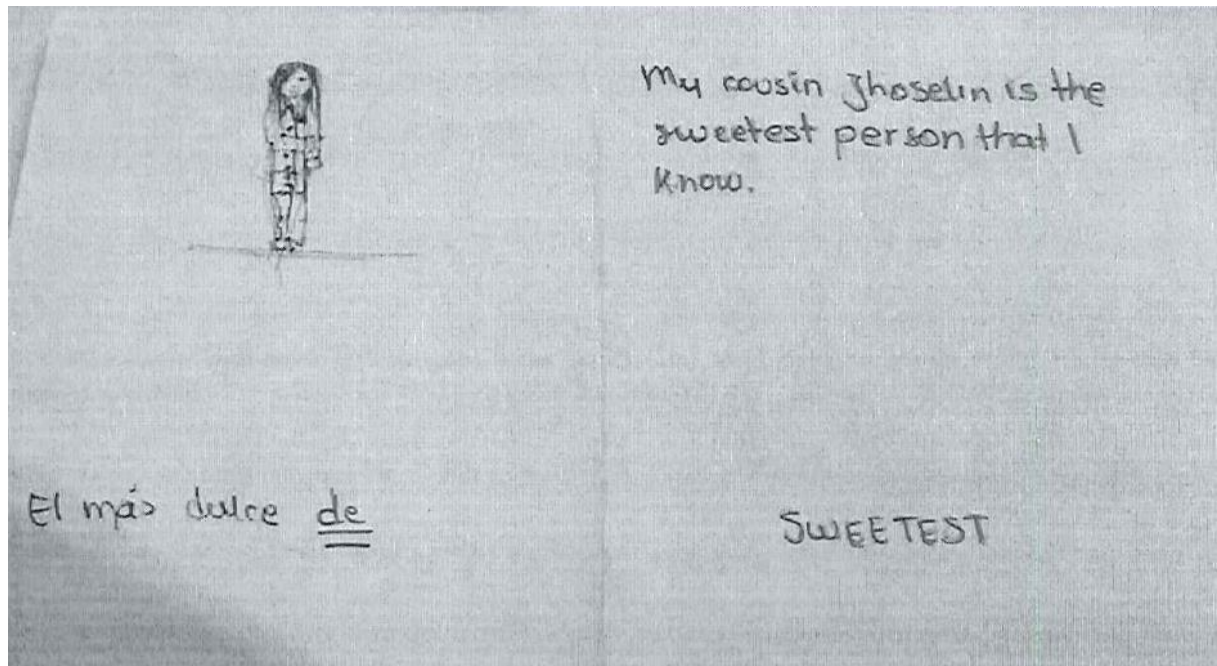 My cousin Jhoselin is the
sweetest person that I
know.
El más dulce de
SWEETEST